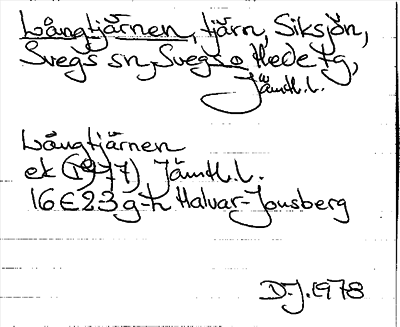 Långtjärnen, tjärn, Siksjön,
Svegs sn, Svegs o Hede tg,
Jämtl.l.
Långtjärnen
ek (1977) Jämtl.l.
16E23g-h Halvar-Jonsberg
D.J. 1978